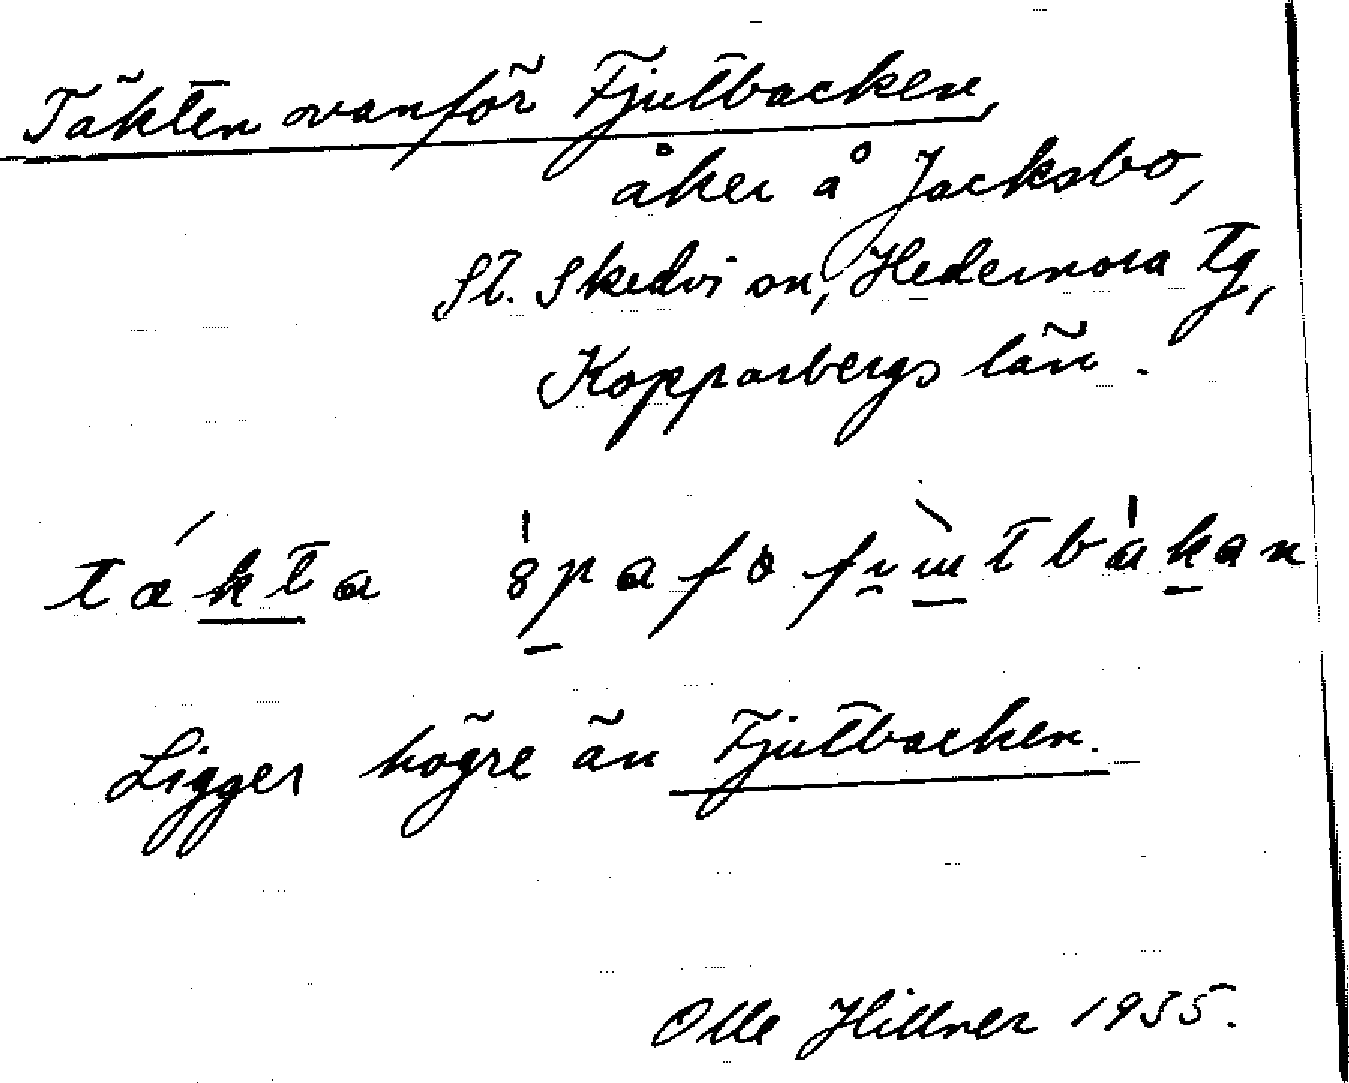 Täkten ovanför Fjutbacken,
åker å Jacksbo,
St. Skedvi sn, Hedemora tg,
Kopparbergs län.
Ligger högre än Fjutbacken.
Olle Hillner 1955.